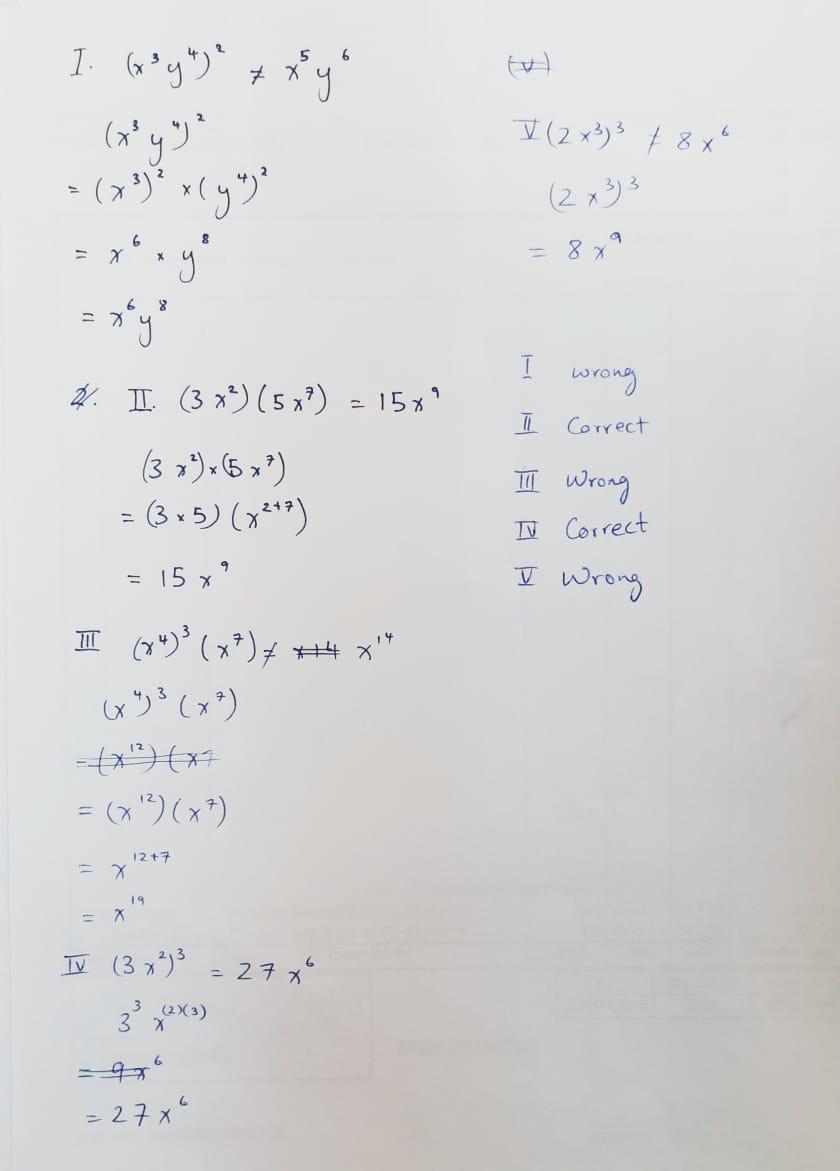 I. (x³y⁴)² ≠ x⁵y⁶
(x³y⁴)²
= (x³)² × (y⁴)²
= x⁶ × y⁸
= x⁶y⁸
2. II. (3x²)(5x⁷) = 15x⁹
(3x²)×(5x⁷)
= (3×5)(x²⁺⁷)
= 15x⁹
III (x⁴)³(x⁷) ≠ x14 x¹⁴
(x⁴)³(x⁷)
= (x¹²)(x⁷
= (x¹²)(x⁷)
= x¹²⁺⁷
= x¹⁹
IV (3x²)³ = 27x⁶
3³ x⁽²⁾⁽³⁾
= 9x⁶
= 27x⁶
(v)
V (2x³)³ ≠ 8x⁶
(2x³)³
= 8x⁹
I wrong
II Correct
III Wrong
IV Correct
V Wrong